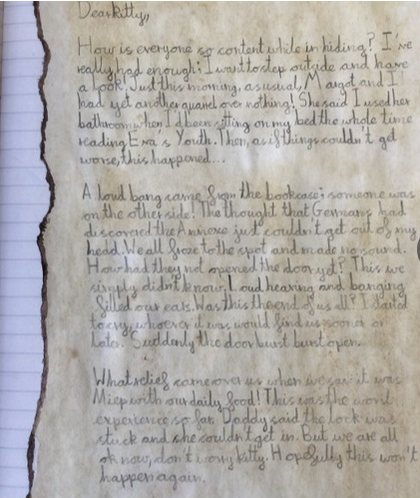 Dear kitty,
How is everyone so content while in hiding? I've
really had enough; I want to step outside and have
a look! Just this morning, as usual, Margot and I
had yet another quarrel over nothing! She said I used her
bathroom when I'd been sitting on my bed the whole time
reading Eva's Youth. Then, as if things couldn't get
worse, this happened...
A loud bang came from the bookcase; someone was
on the other side! The thought that Germans had
discovered the Annexe just couldn't get out of my
head. We all froze to the spot and made no sound.
How had they not opened the door yet? This we
simply didn't know. Loud hearing and banging
filled our ears. Was this the end of us all? I started
to cry, whoever it was would find us sooner or
later. Suddenly the door burst burst open.
What relief came over us when we saw it was
Miep with our daily food! This was the worst
experience so far. Daddy said the lock was
stuck and she couldn't get in. But we are all
ok now, don't worry kitty. Hopefully this won't
happen again.